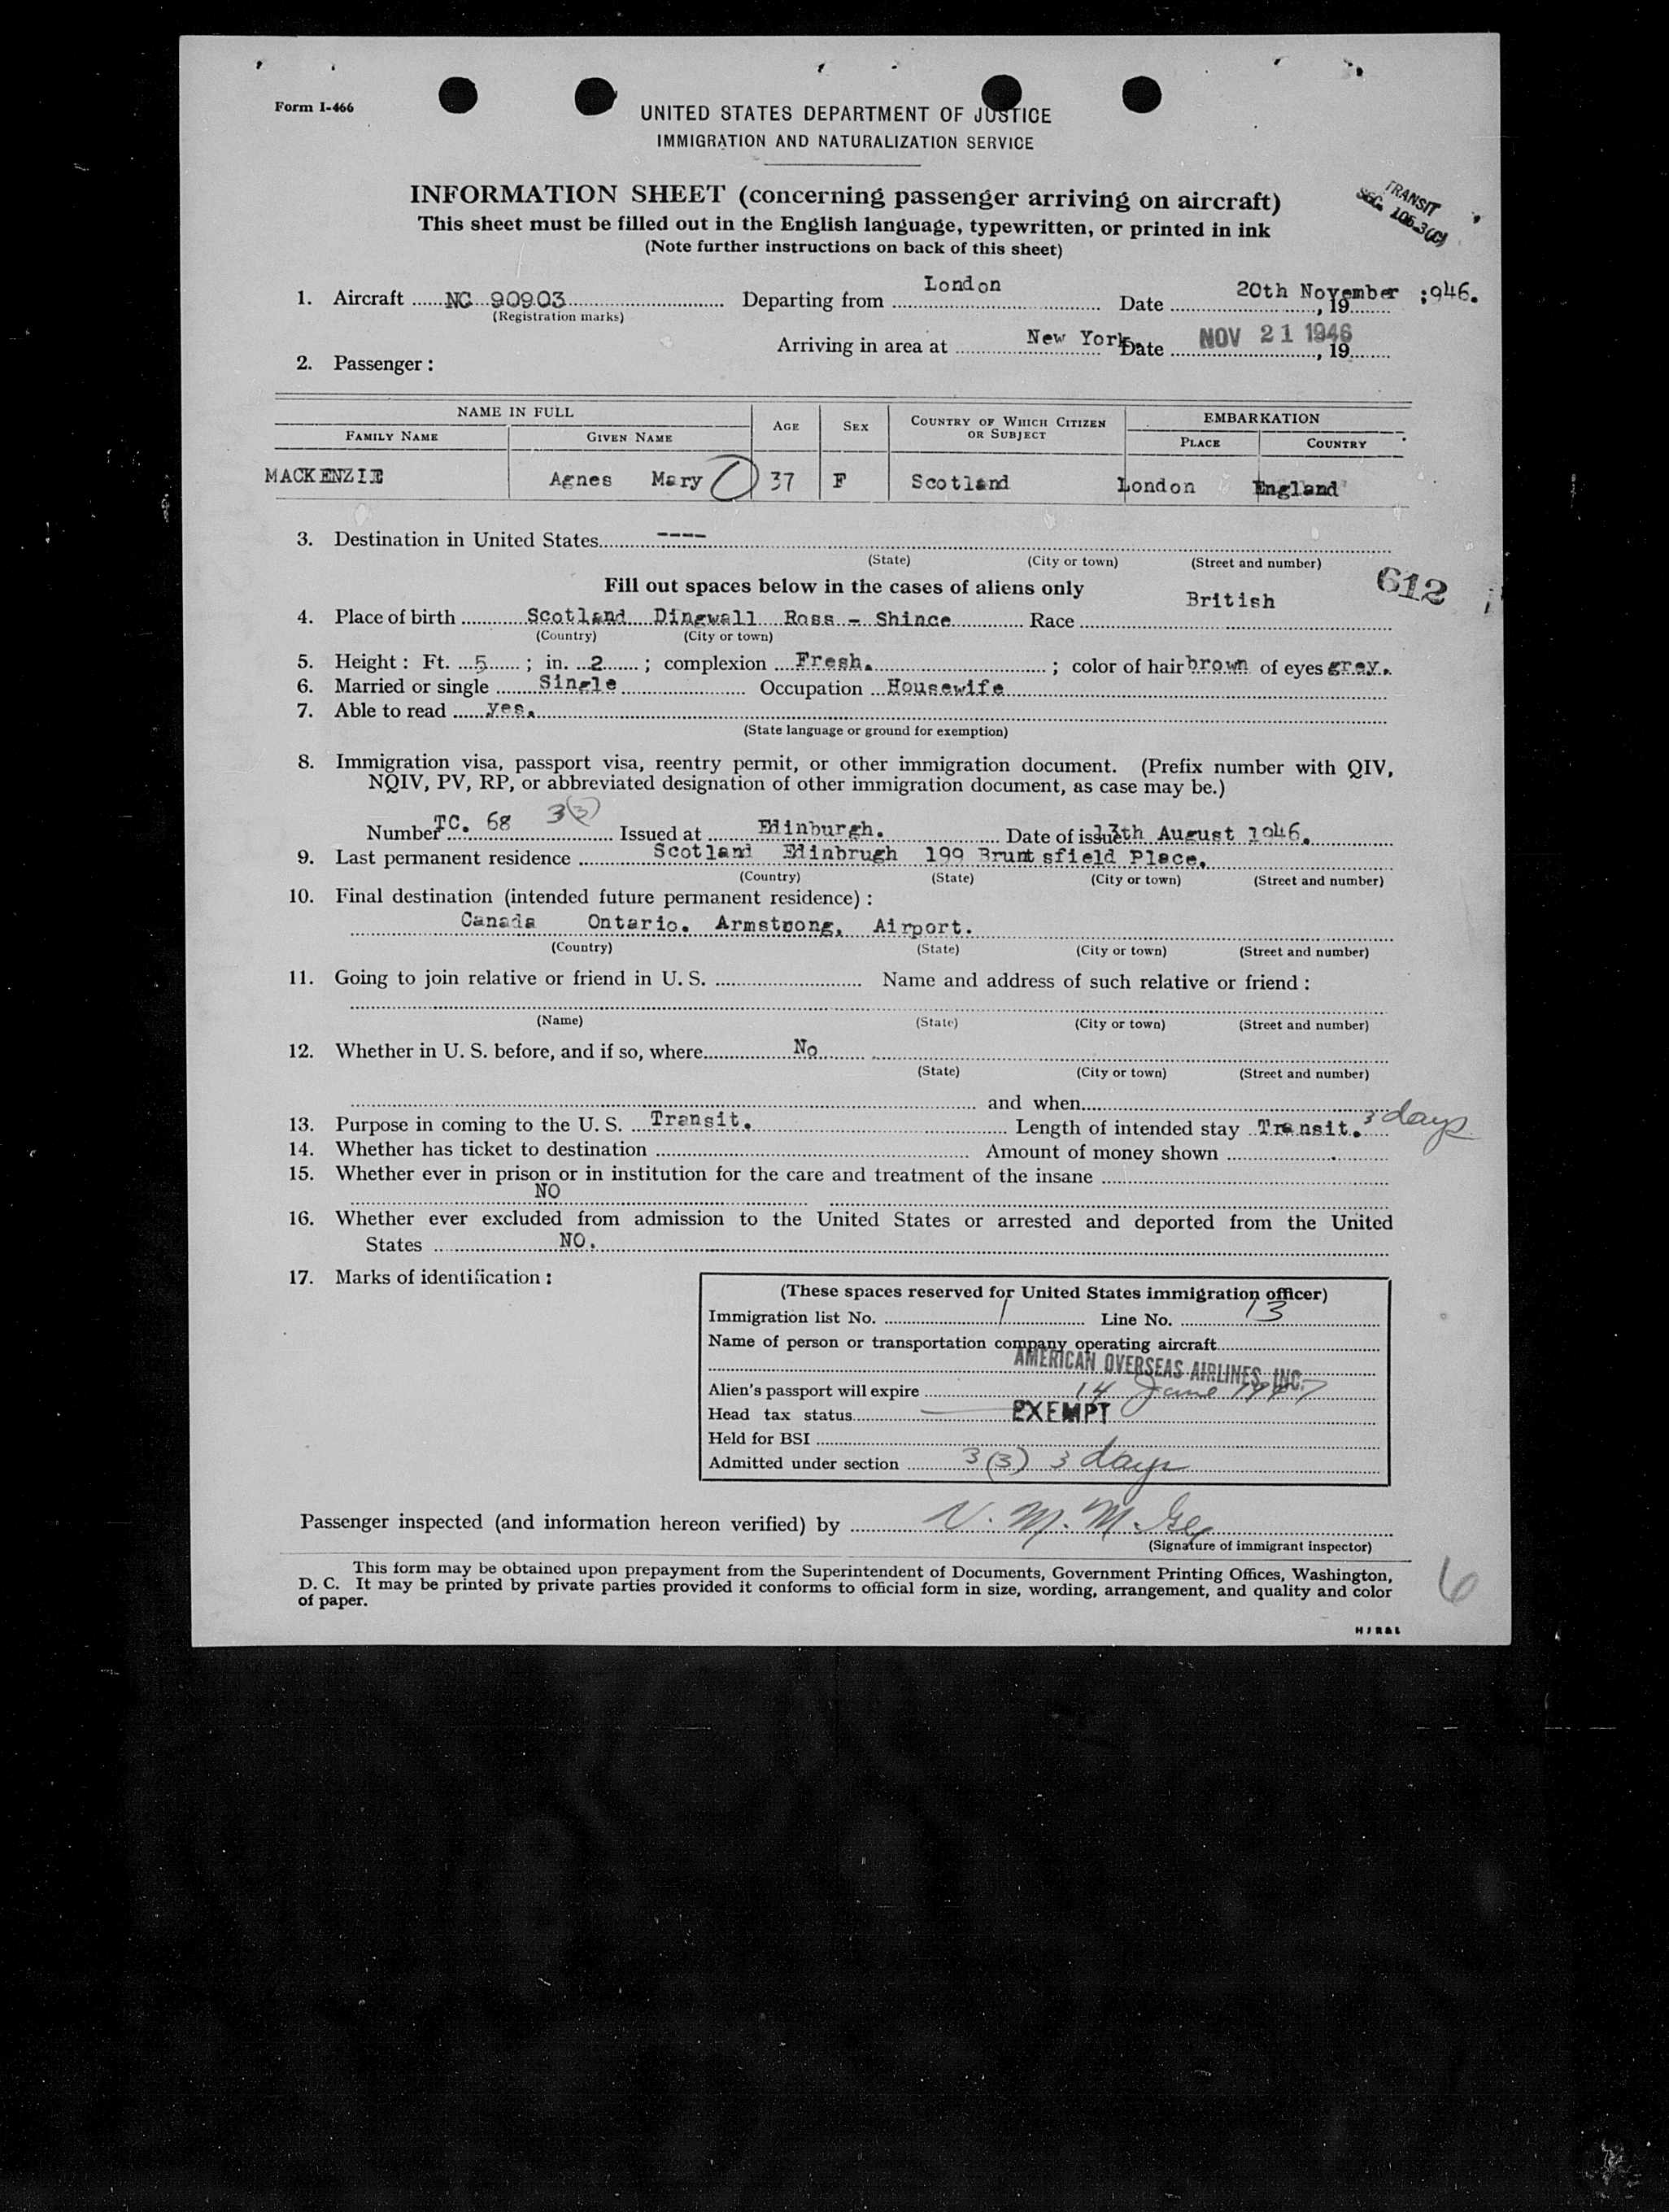 Form I-466
UNITED STATES DEPARTMENT OF JUSTICE
IMMIGRATION AND NATURALIZATION SERVICE
INFORMATION SHEET (concerning passenger arriving on aircraft)
This sheet must be filled out in the English language, typewritten, or printed in ink
(Note further instructions on back of this sheet)
TRANSIT
SEC. 105-3(C)
1. Aircraft NC 90903 Departing from London Date 20th November , 19 1946.
(Registration marks)
Arriving in area at New York. Date NOV 21 1946 , 19
2. Passenger :
NAME IN FULL AGE SEX COUNTRY OF WHICH CITIZEN OR SUBJECT EMBARKATION
FAMILY NAME GIVEN NAME PLACE COUNTRY
MACKENZIE Agnes Mary 37 F Scotland London England
3. Destination in United States ----
(State) (City or town) (Street and number)
Fill out spaces below in the cases of aliens only
612
4. Place of birth Scotland Dingwall Ross - Shince Race British
(Country) (City or town)
5. Height : Ft. 5 ; in. 2 ; complexion Fresh. ; color of hair brown of eyes grey.
6. Married or single Single Occupation Housewife
7. Able to read yes.
(State language or ground for exemption)
8. Immigration visa, passport visa, reentry permit, or other immigration document. (Prefix number with QIV,
NQIV, PV, RP, or abbreviated designation of other immigration document, as case may be.)
Number TC. 68 3(3) Issued at Edinburgh. Date of issue 13th August 1946.
9. Last permanent residence Scotland Edinbrugh 199 Bruntsfield Place.
(Country) (State) (City or town) (Street and number)
10. Final destination (intended future permanent residence) :
Canada Ontario. Armstrong, Airport.
(Country) (State) (City or town) (Street and number)
11. Going to join relative or friend in U. S. Name and address of such relative or friend :
(Name) (State) (City or town) (Street and number)
12. Whether in U. S. before, and if so, where No
(State) (City or town) (Street and number)
and when
13. Purpose in coming to the U. S. Transit. Length of intended stay Transit. 3 days
14. Whether has ticket to destination Amount of money shown
15. Whether ever in prison or in institution for the care and treatment of the insane
NO
16. Whether ever excluded from admission to the United States or arrested and deported from the United
States NO.
17. Marks of identification :
(These spaces reserved for United States immigration officer)
Immigration list No. 1 Line No. 13
Name of person or transportation company operating aircraft
AMERICAN OVERSEAS AIRLINES, INC.
Alien's passport will expire 14 June 1947
Head tax status EXEMPT
Held for BSI
Admitted under section 3(3) 3 days
Passenger inspected (and information hereon verified) by
(Signature of immigrant inspector)
This form may be obtained upon prepayment from the Superintendent of Documents, Government Printing Offices, Washington,
D. C. It may be printed by private parties provided it conforms to official form in size, wording, arrangement, and quality and color
of paper.
6
HJR&L